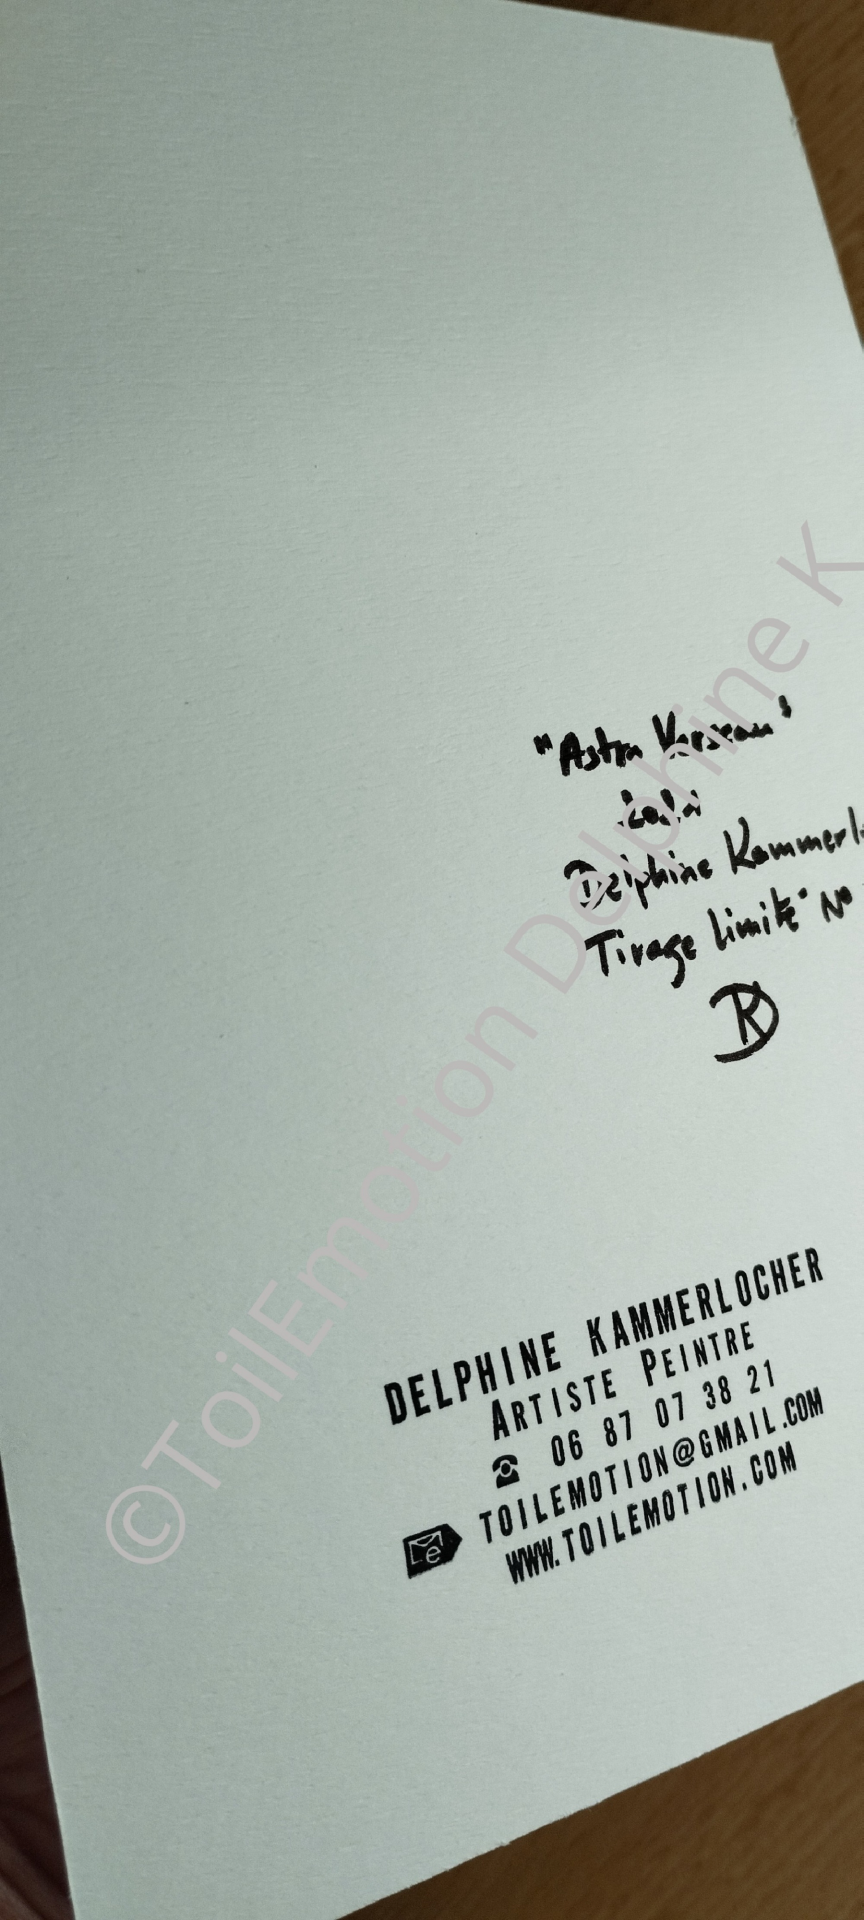 "Astro Verseau"
Delphine Kammerl
Tirage limité N°
DK
DELPHINE KAMMERLOCHER
ARTISTE PEINTRE
06 87 07 38 21
TOILEMOTION@GMAIL.COM
WWW.TOILEMOTION.COM
©ToilEmotion Delphine K